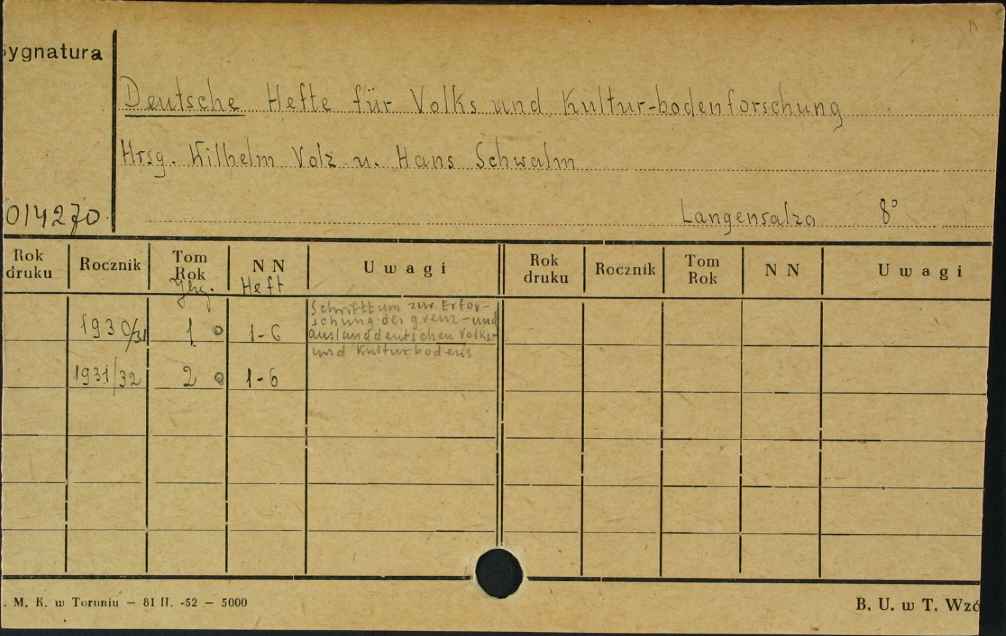 ygnatura
Deutsche Hefte für Volks und Kultur-bodenforschung
Hrsg. Wilhelm Volz u. Hans Schwalm
014270
Langensalza 8°
Rok druku Rocznik Tom Rok Jhrg. NN Heft Uwagi Rok druku Rocznik Tom Rok NN Uwagi
1930/31 1 1-6 Schrifttum zur Erfor-
schung des grenz- und
auslanddeutschen Volks-
und Kulturbodens
1931/32 2 1-6
. M. K. w Toruniu — 81 II. -52 — 5000
B. U. w T. Wzó